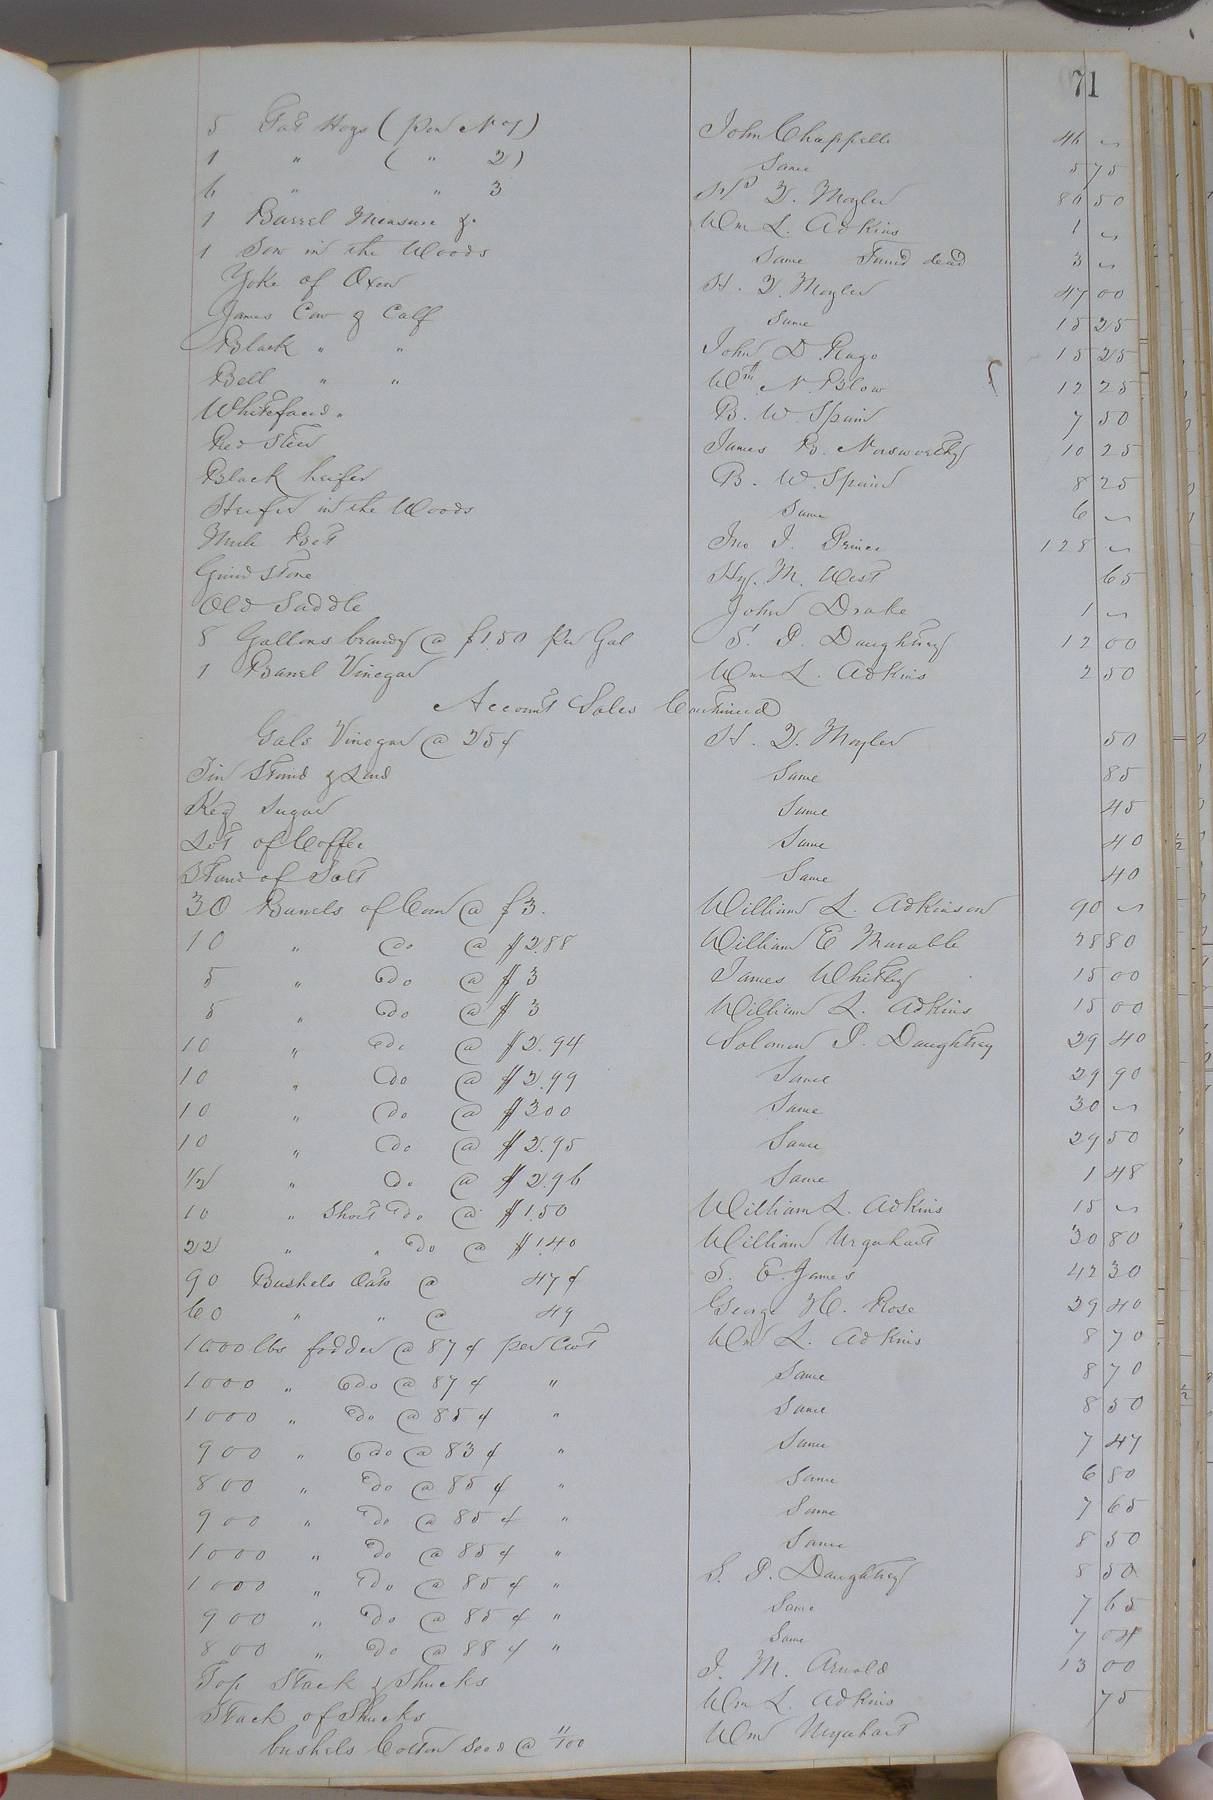 71
5 Fat Hogs (Pen No 1) John Chappell 46 ~
1 " ( " 2) Same 5 75
6 " " 3 H. D. Moyler 80 50
1 Barrel Measure &. Wm L. Adkins 1 ~
1 Sow in the Woods Same Found dead 3 ~
Yoke of Oxen H. D. Moyler 47 00
James Cow & Calf Same 15 25
Black " " John D Rago 15 25
Bell " " Wm N. Blow 12 25
Whiteface " B. W. Spain 7 50
Red Steer James B. Norsworthy 10 25
Black heifer B. W. Spain 8 25
Heifer in the Woods Same 6 ~
Mule Bet Jno J. Prince 128 ~
Grind Stone Hy. M. West 65
Old Saddle John Drake 1 ~
8 Gallons brandy @ $1.50 per Gal S. P. Daughtrey 12 00
1 Barrel Vinegar Wm L. Adkins 2 50
Account Sales Continued
Gals Vinegar @ 25¢ H. D. Moyler 50
Tin Stand & Lard Same 85
Keg Sugar Same 45
Lot of Coffee Same 40
Stand of Salt Same 40
30 Barrels of Corn @ $3. William L. Adkinson 90 ~
10 " do @ $2.88 William E Marable 28 80
5 " do @ $3 James Whitley 15 00
5 " do @ $3 William L. Adkins 15 00
10 " do @ $2.94 Solomon P. Daughtrey 29 40
10 " do @ $2.99 Same 29 90
10 " do @ $3.00 Same 30 ~
10 " do @ $2.95 Same 29 50
1/2 " do @ $2.96 Same 1 48
10 " Short do @ $1.50 William L. Adkins 15 ~
22 " " do @ $1.40 William Urquhart 30 80
90 Bushels Oats @ 47¢ S. E. James 42 30
60 " " @ 49 George H. Rose 29 40
1000 lbs fodder @ 87¢ per Cwt Wm L. Adkins 8 70
1000 " do @ 87¢ " Same 8 70
1000 " do @ 85¢ " Same 8 50
900 " do @ 83¢ " Same 7 47
800 " do @ 85¢ " Same 6 80
900 " do @ 85¢ " Same 7 65
1000 " do @ 85¢ " Same 8 50
1000 " do @ 85¢ " S. P. Daughtrey 8 50
900 " do @ 85¢ " Same 7 65
800 " do @ 88¢ " Same 7 04
Top Stack & Shucks J. M. Arnold 13 00
Stack of Shucks Wm L. Adkins 75
bushels Cotton Seed @ 11/100 Wm Urquhart